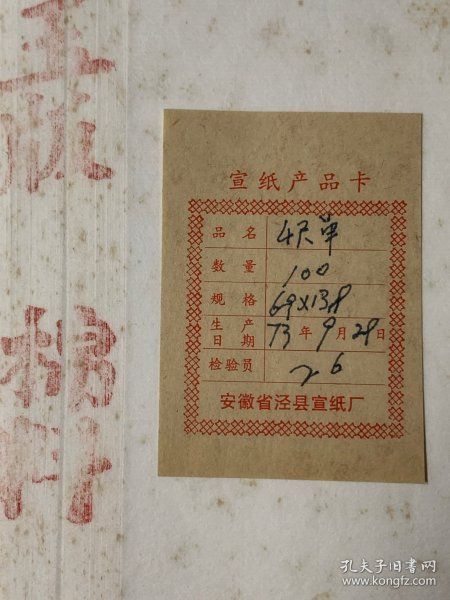 宣纸产品卡
品名 4尺单
数量 100
规格 69×138
生产日期 73年9月29日
检验员 26
安徽省泾县宣纸厂
玉版
棉料
孔夫子旧书网
www.kongfz.com